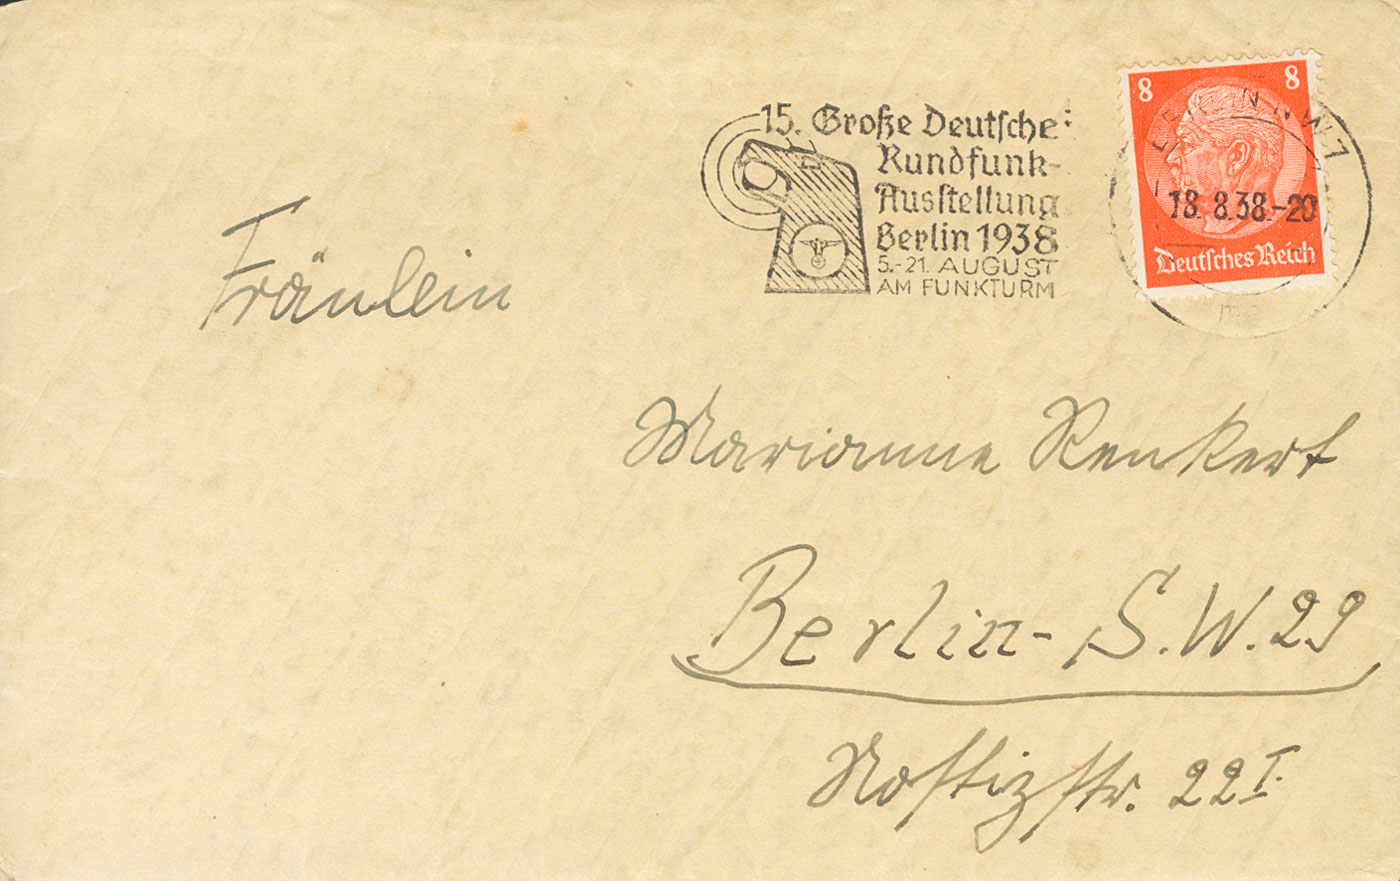 15. Große Deutsche
Rundfunk-
Ausstellung
Berlin 1938
5.-21. AUGUST
AM FUNKTURM
8 8
BERLIN NW 7
18.8.38.-20
Deutsches Reich
Fräulein
Marianne Renkert
Berlin- S.W. 29
Nostizstr. 22 I.